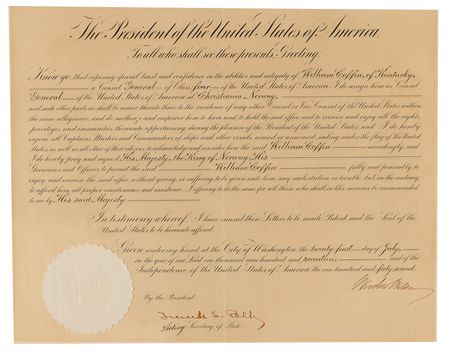 The President of the United States of America.
To all who shall see these presents, Greeting:
Know ye, that reposing special trust and confidence in the abilities and integrity of William Coffin, of Kentucky,
a Consul General of Class four of the United States of America I do assign him as Consul
General of the United States of America at Christiania, Norway,
and such other parts as shall be nearer thereto than to the residence of any other Consul or Vice Consul of the United States within
the same allegiance, and do authorize and empower him to have and to hold the said office and to exercise and enjoy all the rights,
privileges and immunities thereunto appertaining during the pleasure of the President of the United States, and I do hereby
enjoin all Captains Masters and Commanders of ships and other vessels, armed or unarmed, sailing under the flag of the United
States, as well as all other of their citizens, to acknowledge and consider him the said William Coffin accordingly, and
I do hereby pray and request His Majesty, the King of Norway, His
Governors and Officers to permit the said William Coffin fully and peaceably to
enjoy and exercise the said office without giving, or suffering to be given unto him, any molestation or trouble, but on the contrary
to afford him all proper countenance and assistance; I offering to do the same for all those who shall in like manner be recommended
to me by His said Majesty
In testimony whereof, I have caused these Letters to be made Patent, and the Seal of the
United States to be hereunto affixed.
Given under my hand, at the City of Washington, the twenty-first day of July,
in the year of our Lord one thousand nine hundred and seventeen, and of the
Independence of the United States of America the one hundred and forty-second.
Woodrow Wilson
By the President:
Frank L. Polk
Acting Secretary of State.